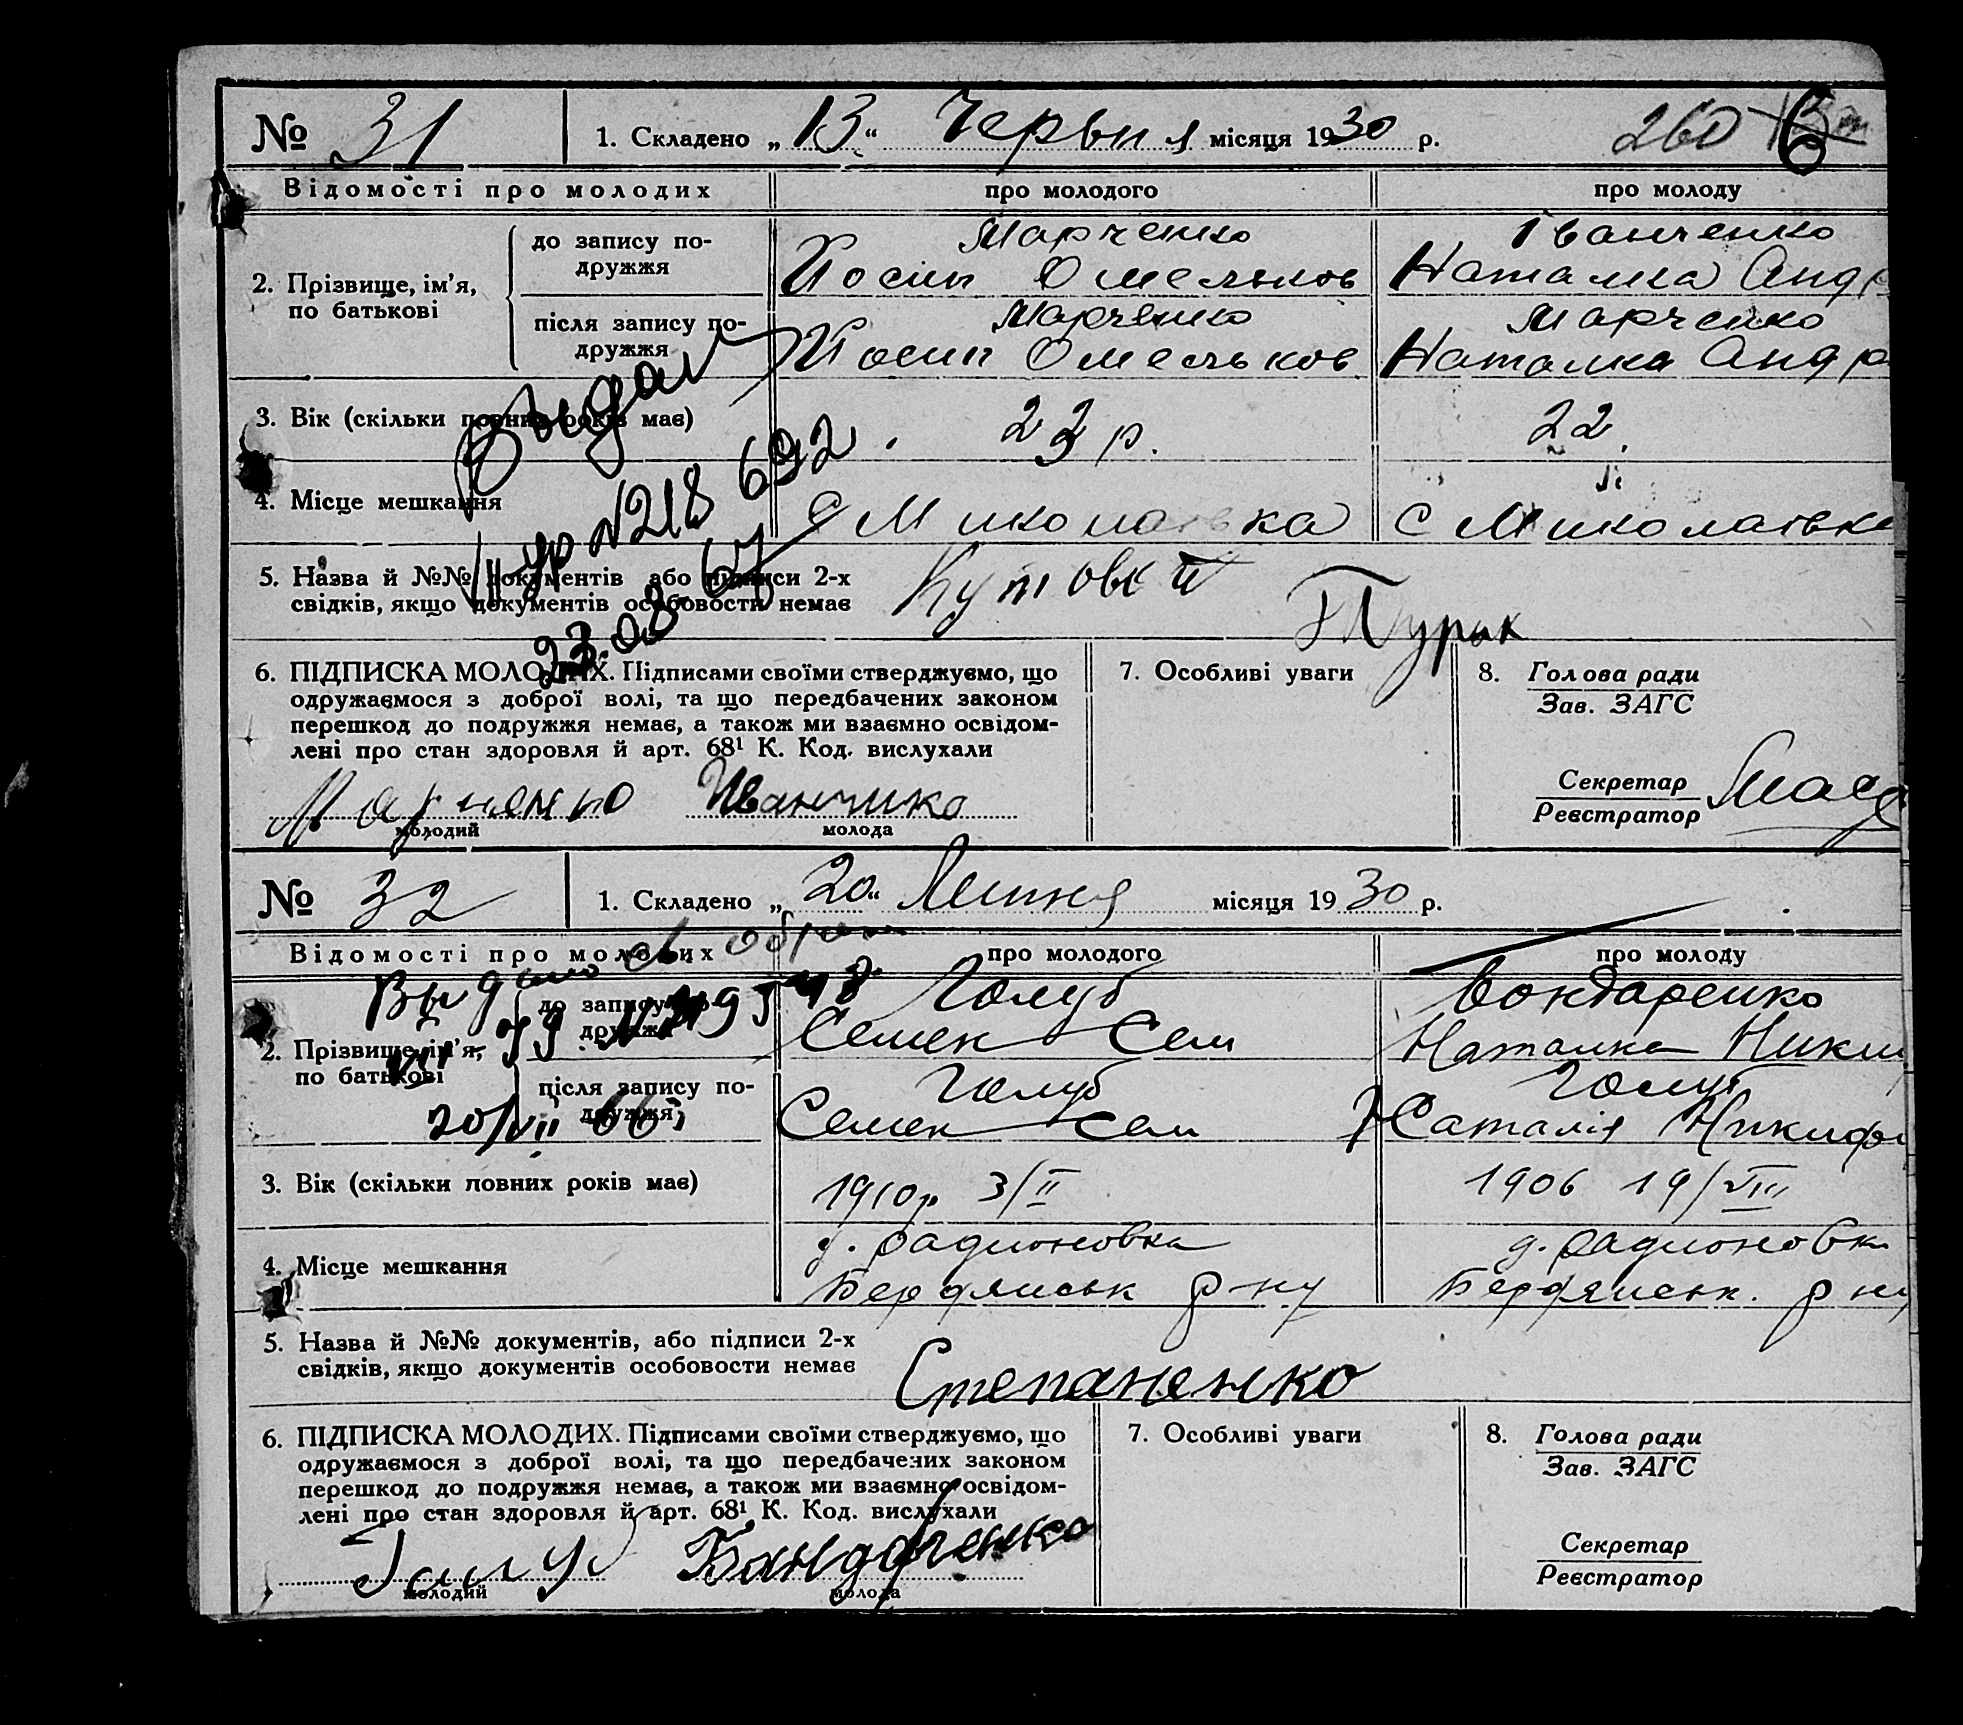 № 31
1. Складено „13“ Червня місяця 1930 р.
260
6
Відомості про молодих
про молодого
про молоду
2. Прізвище, ім’я,
по батькові
до запису по-
дружжя
Марченко
Йосип Омельков
Іванченко
Наталка Андр
після запису по-
дружжя
Марченко
Йосип Омельков
Марченко
Наталка Андр
3. Вік (скільки повних років має)
23 р.
22.
4. Місце мешкання
С Миколаївка
С Миколаївка
Выдан
III ур №218 692
23.08.67
5. Назва й №№ документів або підписи 2-х
свідків, якщо документів особовости немає
Кутовий
Турик
6. ПІДПИСКА МОЛОДИХ. Підписами своїми стверджуємо, що
одружаємося з доброї волі, та що передбачених законом
перешкод до подружжя немає, а також ми взаємно освідом-
лені про стан здоровля й арт. 68¹ К. Код. вислухали
Марченко Иванчико
молодий
молода
7. Особливі уваги
8. Голова ради
Зав. ЗАГС
Секретар
Реєстратор
№ 32
1. Складено „20“ Липня місяця 1930 р.
Відомості про молодих
про молодого
про молоду
Выдано св. о браке
20/VII 66
2. Прізвище, ім’я,
по батькові
до запису по-
дружжя
Голуб
Семен Сем
Бондаренко
Наталка Никиф
після запису по-
дружжя
Голуб
Семен Сем
Голуб
Наталія Никифо
3. Вік (скільки повних років має)
1910р 3/II
1906 19/VIII
4. Місце мешкання
д. Радионовка
Бердянськ р-ну
д. Радионовк
Бердянськ. р ну
5. Назва й №№ документів, або підписи 2-х
свідків, якщо документів особовости немає
Степаненко
6. ПІДПИСКА МОЛОДИХ. Підписами своїми стверджуємо, що
одружаємося з доброї волі, та що передбачених законом
перешкод до подружжя немає, а також ми взаємно освідом-
лені про стан здоровля й арт. 68¹ К. Код. вислухали
Галуб Бандаренко
молодий
молода
7. Особливі уваги
8. Голова ради
Зав. ЗАГС
Секретар
Реєстратор